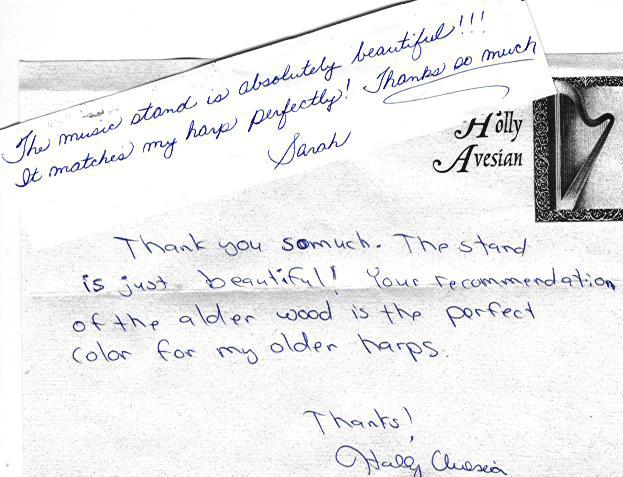 The music stand is absolutely beautiful!!!
It matches my harp perfectly! Thanks so much
Sarah
Holly
Avesian
Thank you so much. The stand
is just beautiful! Your recommendation
of the alder wood is the perfect
color for my older harps.
Thanks!
Holly Avesian